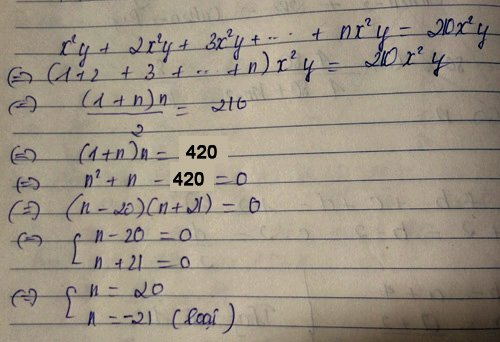 x²y + 2x²y + 3x²y + ... + nx²y = 210x²y
(=) (1+2 + 3 + ... + n) x²y = 210 x²y
(=) (1+n)n / 2 = 210
(=) (1+n)n = 420
(=) n² + n - 420 = 0
(=) (n - 20)(n + 21) = 0
(=) { n - 20 = 0
n + 21 = 0
(=) { n = 20
n = -21 (loại)